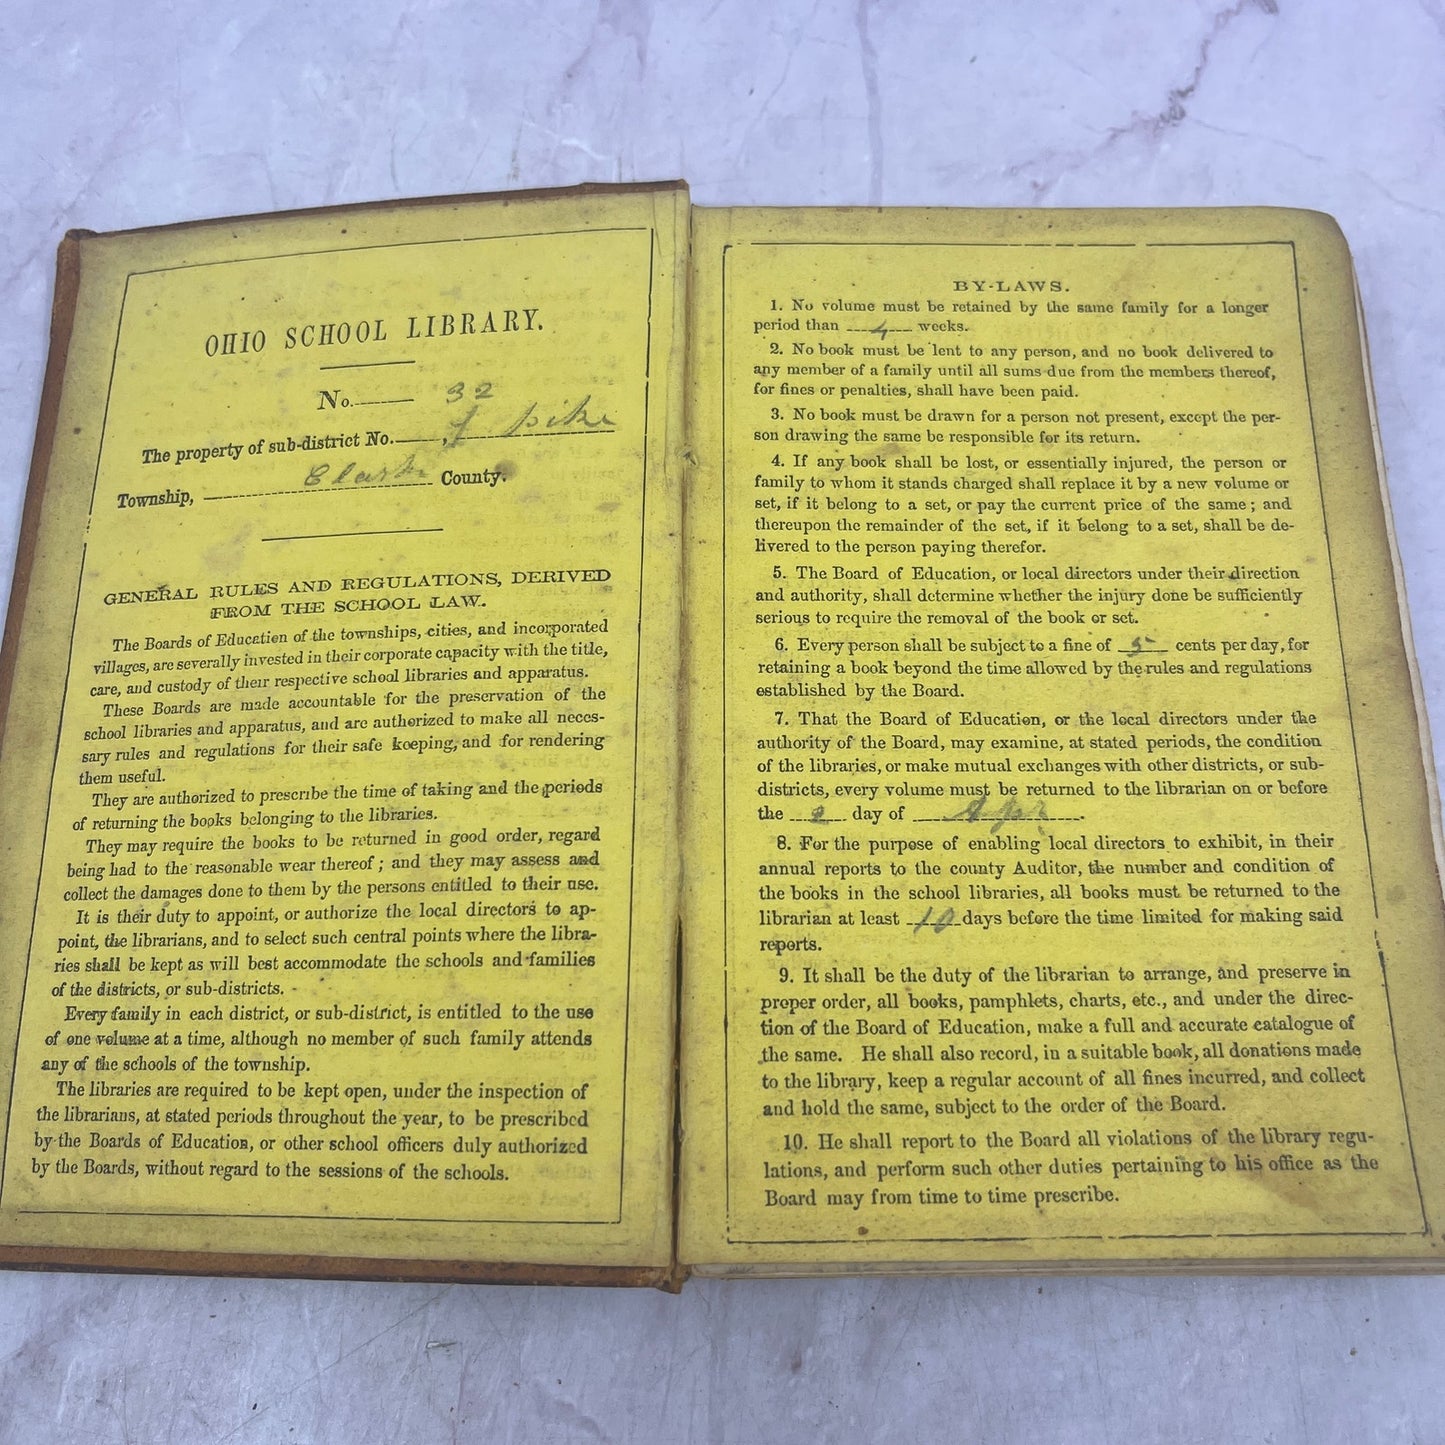 OHIO SCHOOL LIBRARY.
No. 32
The property of sub-district No. , 1 pike
Township, Clark County.
GENERAL RULES AND REGULATIONS, DERIVED
FROM THE SCHOOL LAW.
The Boards of Education of the townships, cities, and incorporated
villages, are severally invested in their corporate capacity with the title,
care, and custody of their respective school libraries and apparatus.
These Boards are made accountable for the preservation of the
school libraries and apparatus, and are authorized to make all neces-
sary rules and regulations for their safe keeping, and for rendering
them useful.
They are authorized to prescribe the time of taking and the periods
of returning the books belonging to the libraries.
They may require the books to be returned in good order, regard
being had to the reasonable wear thereof; and they may assess and
collect the damages done to them by the persons entitled to their use.
It is their duty to appoint, or authorize the local directors to ap-
point, the librarians, and to select such central points where the libra-
ries shall be kept as will best accommodate the schools and families
of the districts, or sub-districts.
Every family in each district, or sub-district, is entitled to the use
of one volume at a time, although no member of such family attends
any of the schools of the township.
The libraries are required to be kept open, under the inspection of
the librarians, at stated periods throughout the year, to be prescribed
by the Boards of Education, or other school officers duly authorized
by the Boards, without regard to the sessions of the schools.
BY-LAWS.
1. No volume must be retained by the same family for a longer
period than 4 weeks.
2. No book must be lent to any person, and no book delivered to
any member of a family until all sums due from the members thereof,
for fines or penalties, shall have been paid.
3. No book must be drawn for a person not present, except the per-
son drawing the same be responsible for its return.
4. If any book shall be lost, or essentially injured, the person or
family to whom it stands charged shall replace it by a new volume or
set, if it belong to a set, or pay the current price of the same; and
thereupon the remainder of the set, if it belong to a set, shall be de-
livered to the person paying therefor.
5. The Board of Education, or local directors under their direction
and authority, shall determine whether the injury done be sufficiently
serious to require the removal of the book or set.
6. Every person shall be subject to a fine of 5 cents per day, for
retaining a book beyond the time allowed by the rules and regulations
established by the Board.
7. That the Board of Education, or the local directors under the
authority of the Board, may examine, at stated periods, the condition
of the libraries, or make mutual exchanges with other districts, or sub-
districts, every volume must be returned to the librarian on or before
the 2 day of Apr.
8. For the purpose of enabling local directors to exhibit, in their
annual reports to the county Auditor, the number and condition of
the books in the school libraries, all books must be returned to the
librarian at least 10 days before the time limited for making said
reports.
9. It shall be the duty of the librarian to arrange, and preserve in
proper order, all books, pamphlets, charts, etc., and under the direc-
tion of the Board of Education, make a full and accurate catalogue of
the same. He shall also record, in a suitable book, all donations made
to the library, keep a regular account of all fines incurred, and collect
and hold the same, subject to the order of the Board.
10. He shall report to the Board all violations of the library regu-
lations, and perform such other duties pertaining to his office as the
Board may from time to time prescribe.